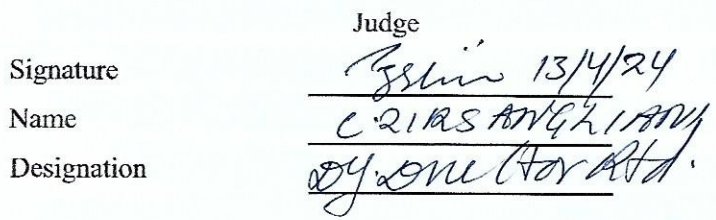 Judge
Signature 13/4/24
Name C. ZIRSANGLIANA
Designation Dy. Director Rtd.